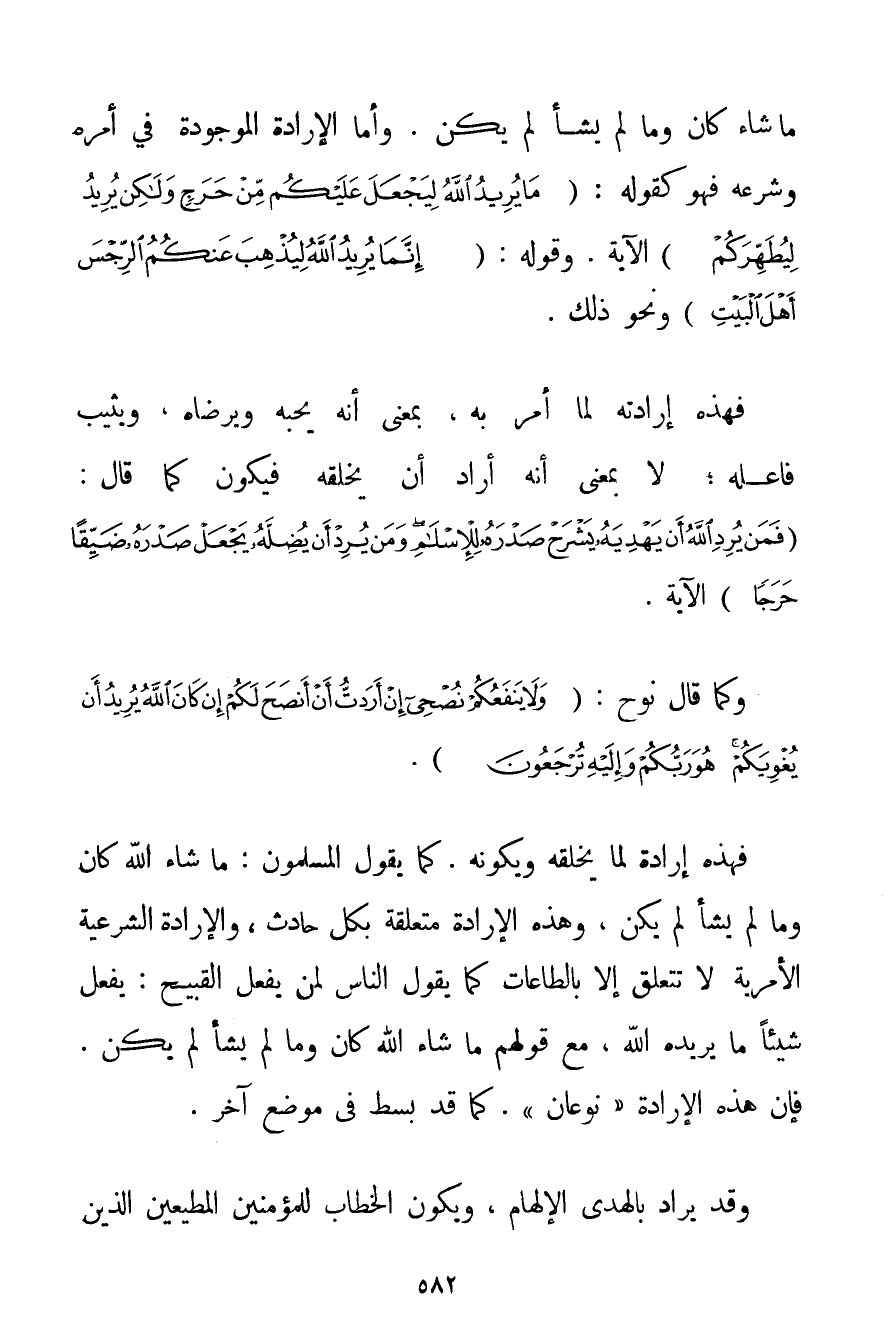 ما شاء كان وما لم يشـأ لم يكـن . وأما الإرادة الموجودة في أمره
وشرعه فهو كقوله : ( مَايُرِيدُ ٱللَّهُ لِيَجْعَلَ عَلَيْكُم مِّنْ حَرَجٍ وَلَٰكِن يُرِيدُ
لِيُطَهِّرَكُمْ ) الآية . وقوله : ( إِنَّمَا يُرِيدُ ٱللَّهُ لِيُذْهِبَ عَنكُمُ ٱلرِّجْسَ
أَهْلَ ٱلْبَيْتِ ) ونحو ذلك .
فهذه إرادته لما أمر به ، بمعنى أنه يحبه ويرضاه ، ويثيب
فاعـله ؛ لا بمعنى أنه أراد أن يخلقه فيكون كما قال :
(فَمَن يُرِدِ ٱللَّهُ أَن يَهْدِيَهُۥ يَشْرَحْ صَدْرَهُۥ لِلْإِسْلَٰمِ ۖ وَمَن يُرِدْ أَن يُضِلَّهُۥ يَجْعَلْ صَدْرَهُۥ ضَيِّقًا
حَرَجًا ) الآية .
وكما قال نوح : ( وَلَا يَنفَعُكُمْ نُصْحِىٓ إِنْ أَرَدتُّ أَنْ أَنصَحَ لَكُمْ إِن كَانَ ٱللَّهُ يُرِيدُ أَن
يُغْوِيَكُمْ ۚ هُوَ رَبُّكُمْ وَإِلَيْهِ تُرْجَعُونَ ) .
فهذه إرادة لما يخلقه ويكونه . كما يقول المسلمون : ما شاء الله كان
وما لم يشأ لم يكن ، وهذه الإرادة متعلقة بكل حادث ، والإرادة الشرعية
الأمرية لا تتعلق إلا بالطاعات كما يقول الناس لمن يفعل القبيح : يفعل
شيئاً ما يريده الله ، مع قولهم ما شاء الله كان وما لم يشأ لم يكـن .
فإن هذه الإرادة « نوعان » . كما قد بسط فى موضع آخر .
وقد يراد بالهدى الإلهام ، ويكون الخطاب للمؤمنين المطيعين الذين
٥٨٢